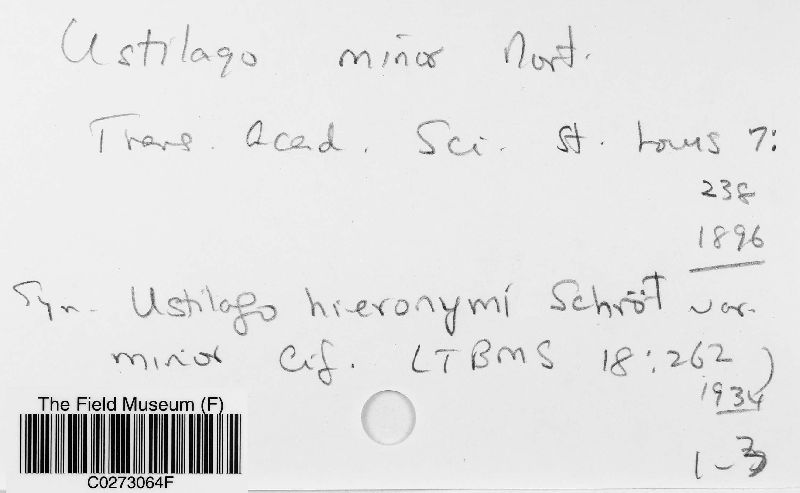 Ustilago minor Nort.
Trans. Acad. Sci. St. Louis 7:
238
1896
Syn. Ustilago hieronymi Schröt var.
minor Cif. (TBMS 18:262)
1934
1-3
The Field Museum (F)
C0273064F